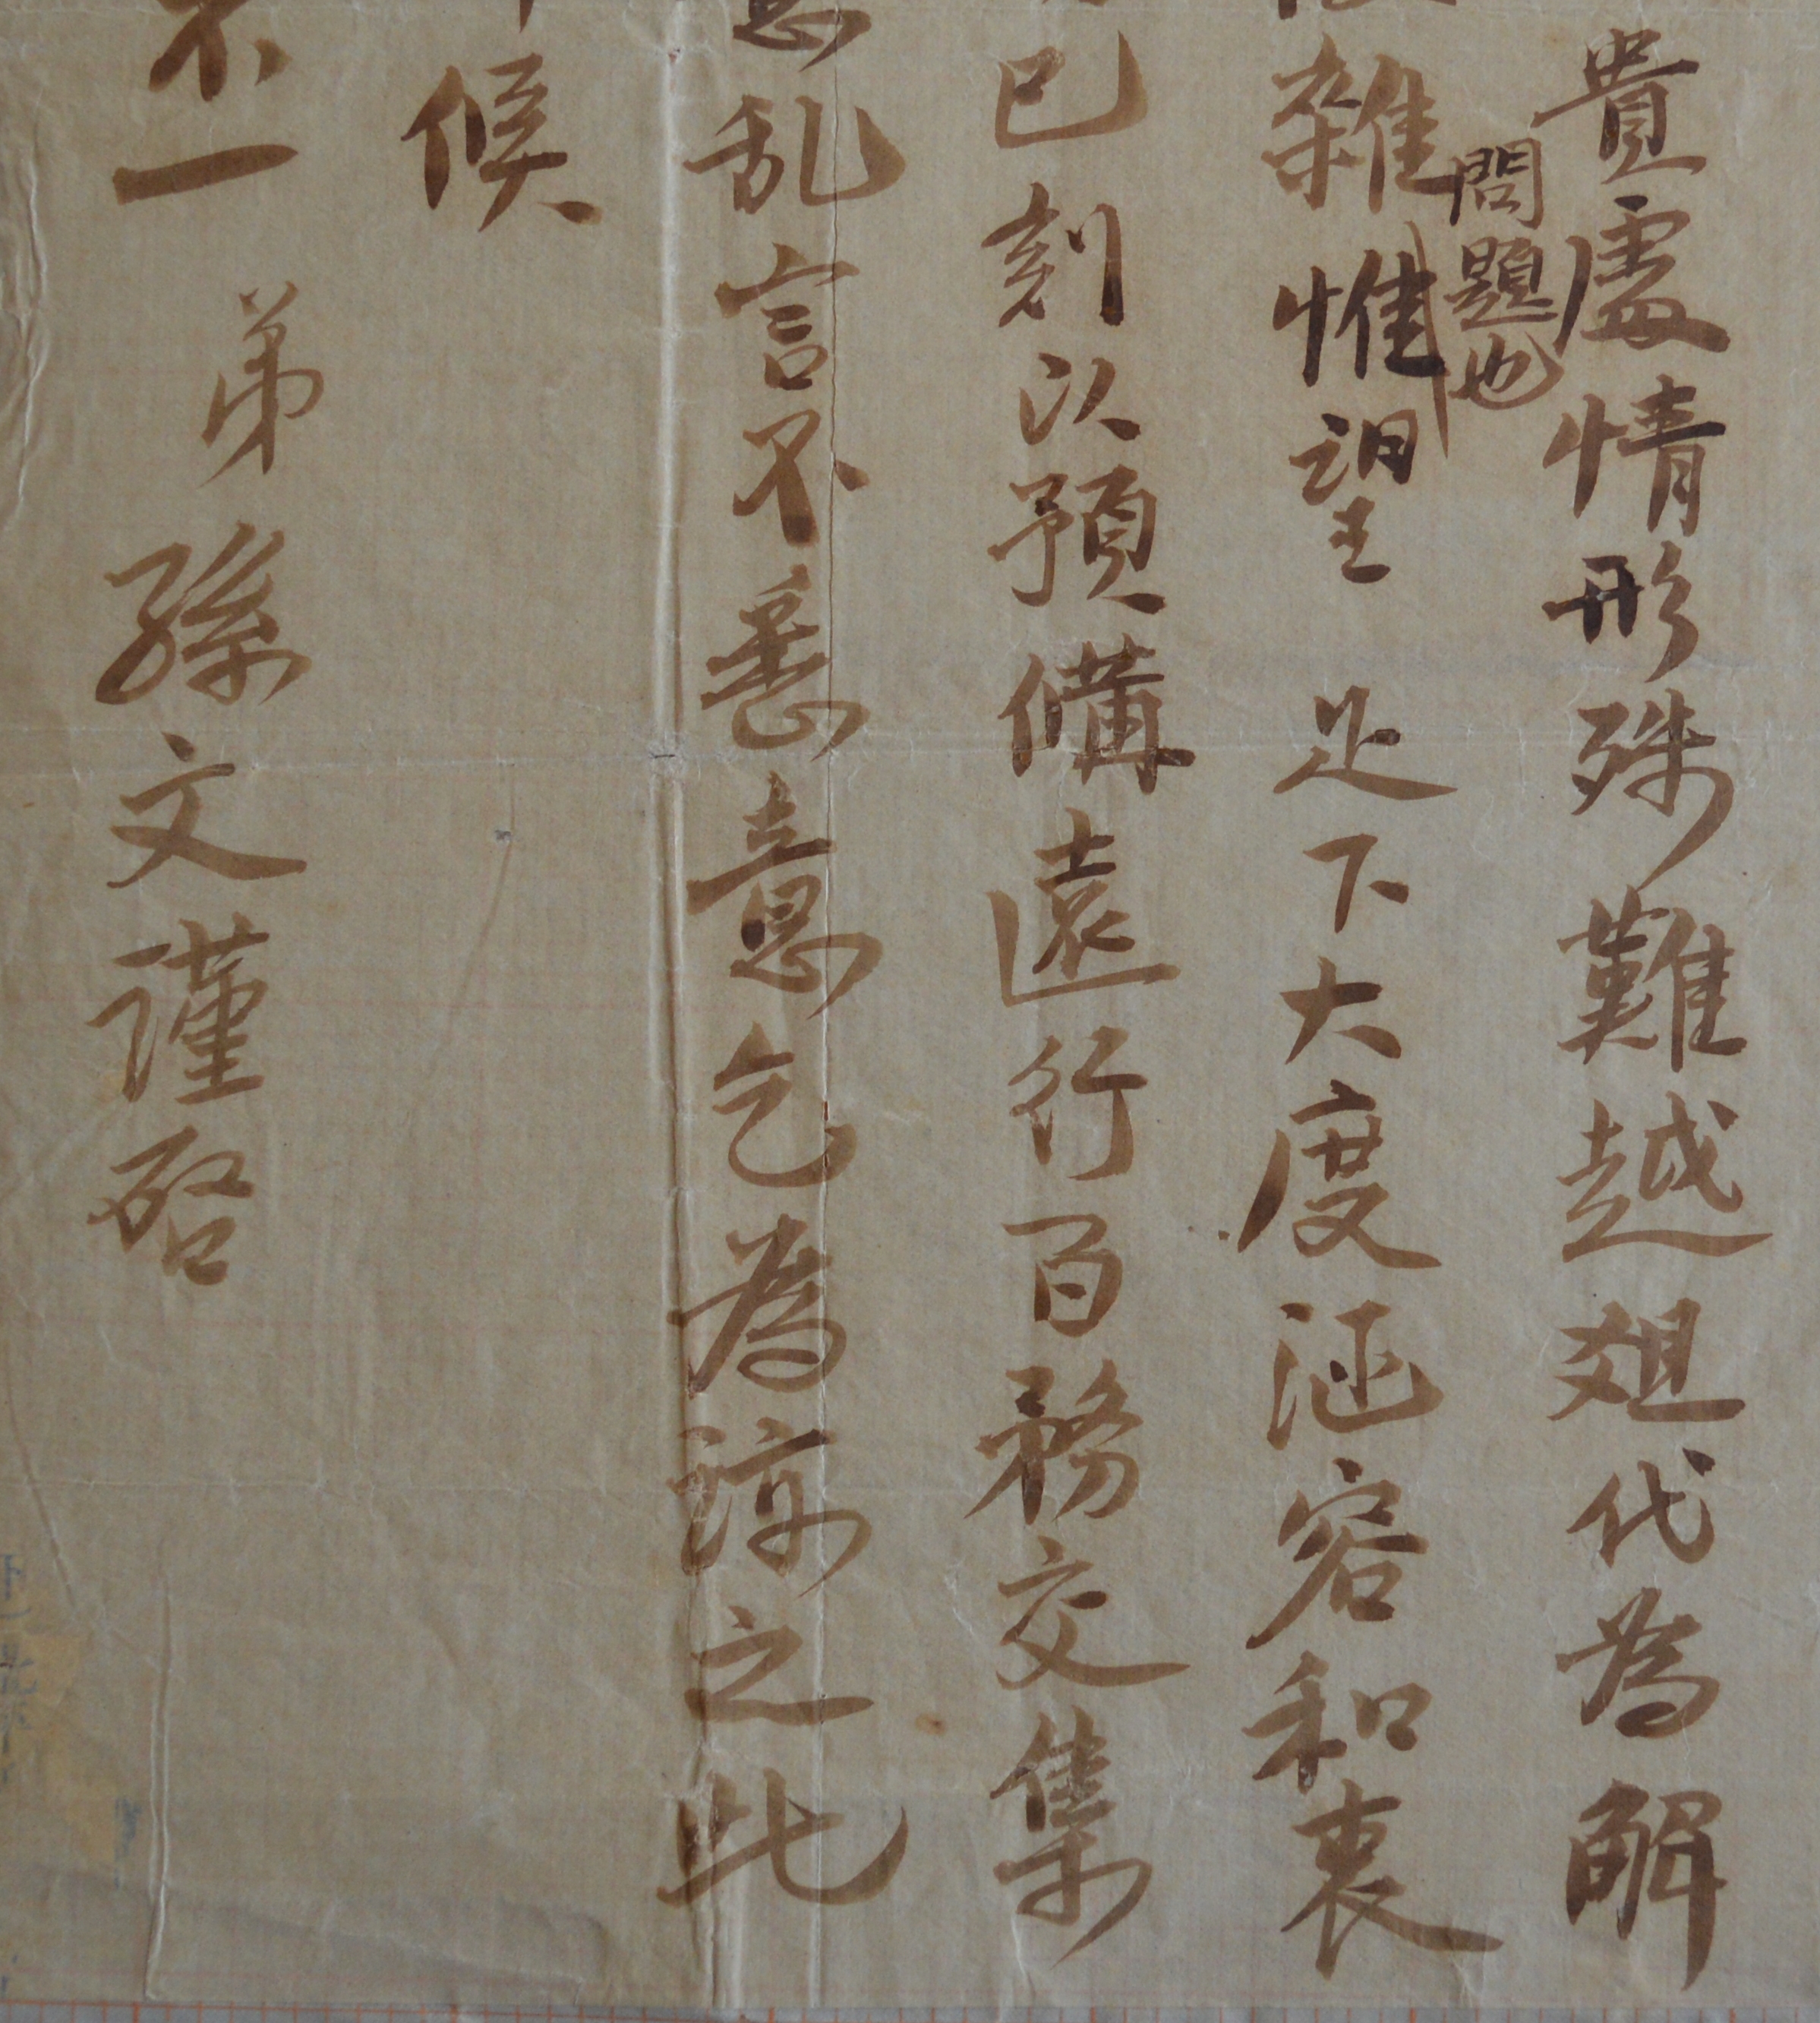 貴處情形殊難越俎代為解
問題也
雜惟望 足下大度涵容和衷
已刻以預備遠行百務交集
乱言不悉意乞為諒之此
候
不一 弟孫文謹啓